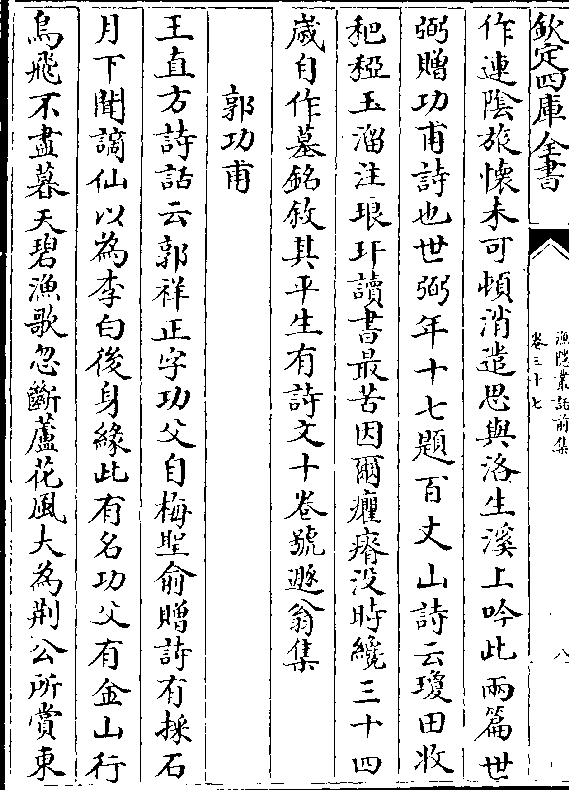 欽定四庫全書
漁隱叢話前集
卷三十七
八
作連隂旅懷未可頓消遣思與洛生溪上吟此兩篇世
弼贈功甫詩也世弼年十七題百丈山詩云瓊田收
䄫稏玉溜注琅玕讀書最苦因爾癯瘠没時纔三十四
歲自作墓銘敘其平生有詩文十卷號遯翁集
郭功甫
王直方詩話云郭祥正字功父自梅聖俞贈詩有採石
月下聞謫仙以為李白後身緣此有名功父有金山行
鳥飛不盡暮天碧漁歌忽斷蘆花風大為荆公所賞東